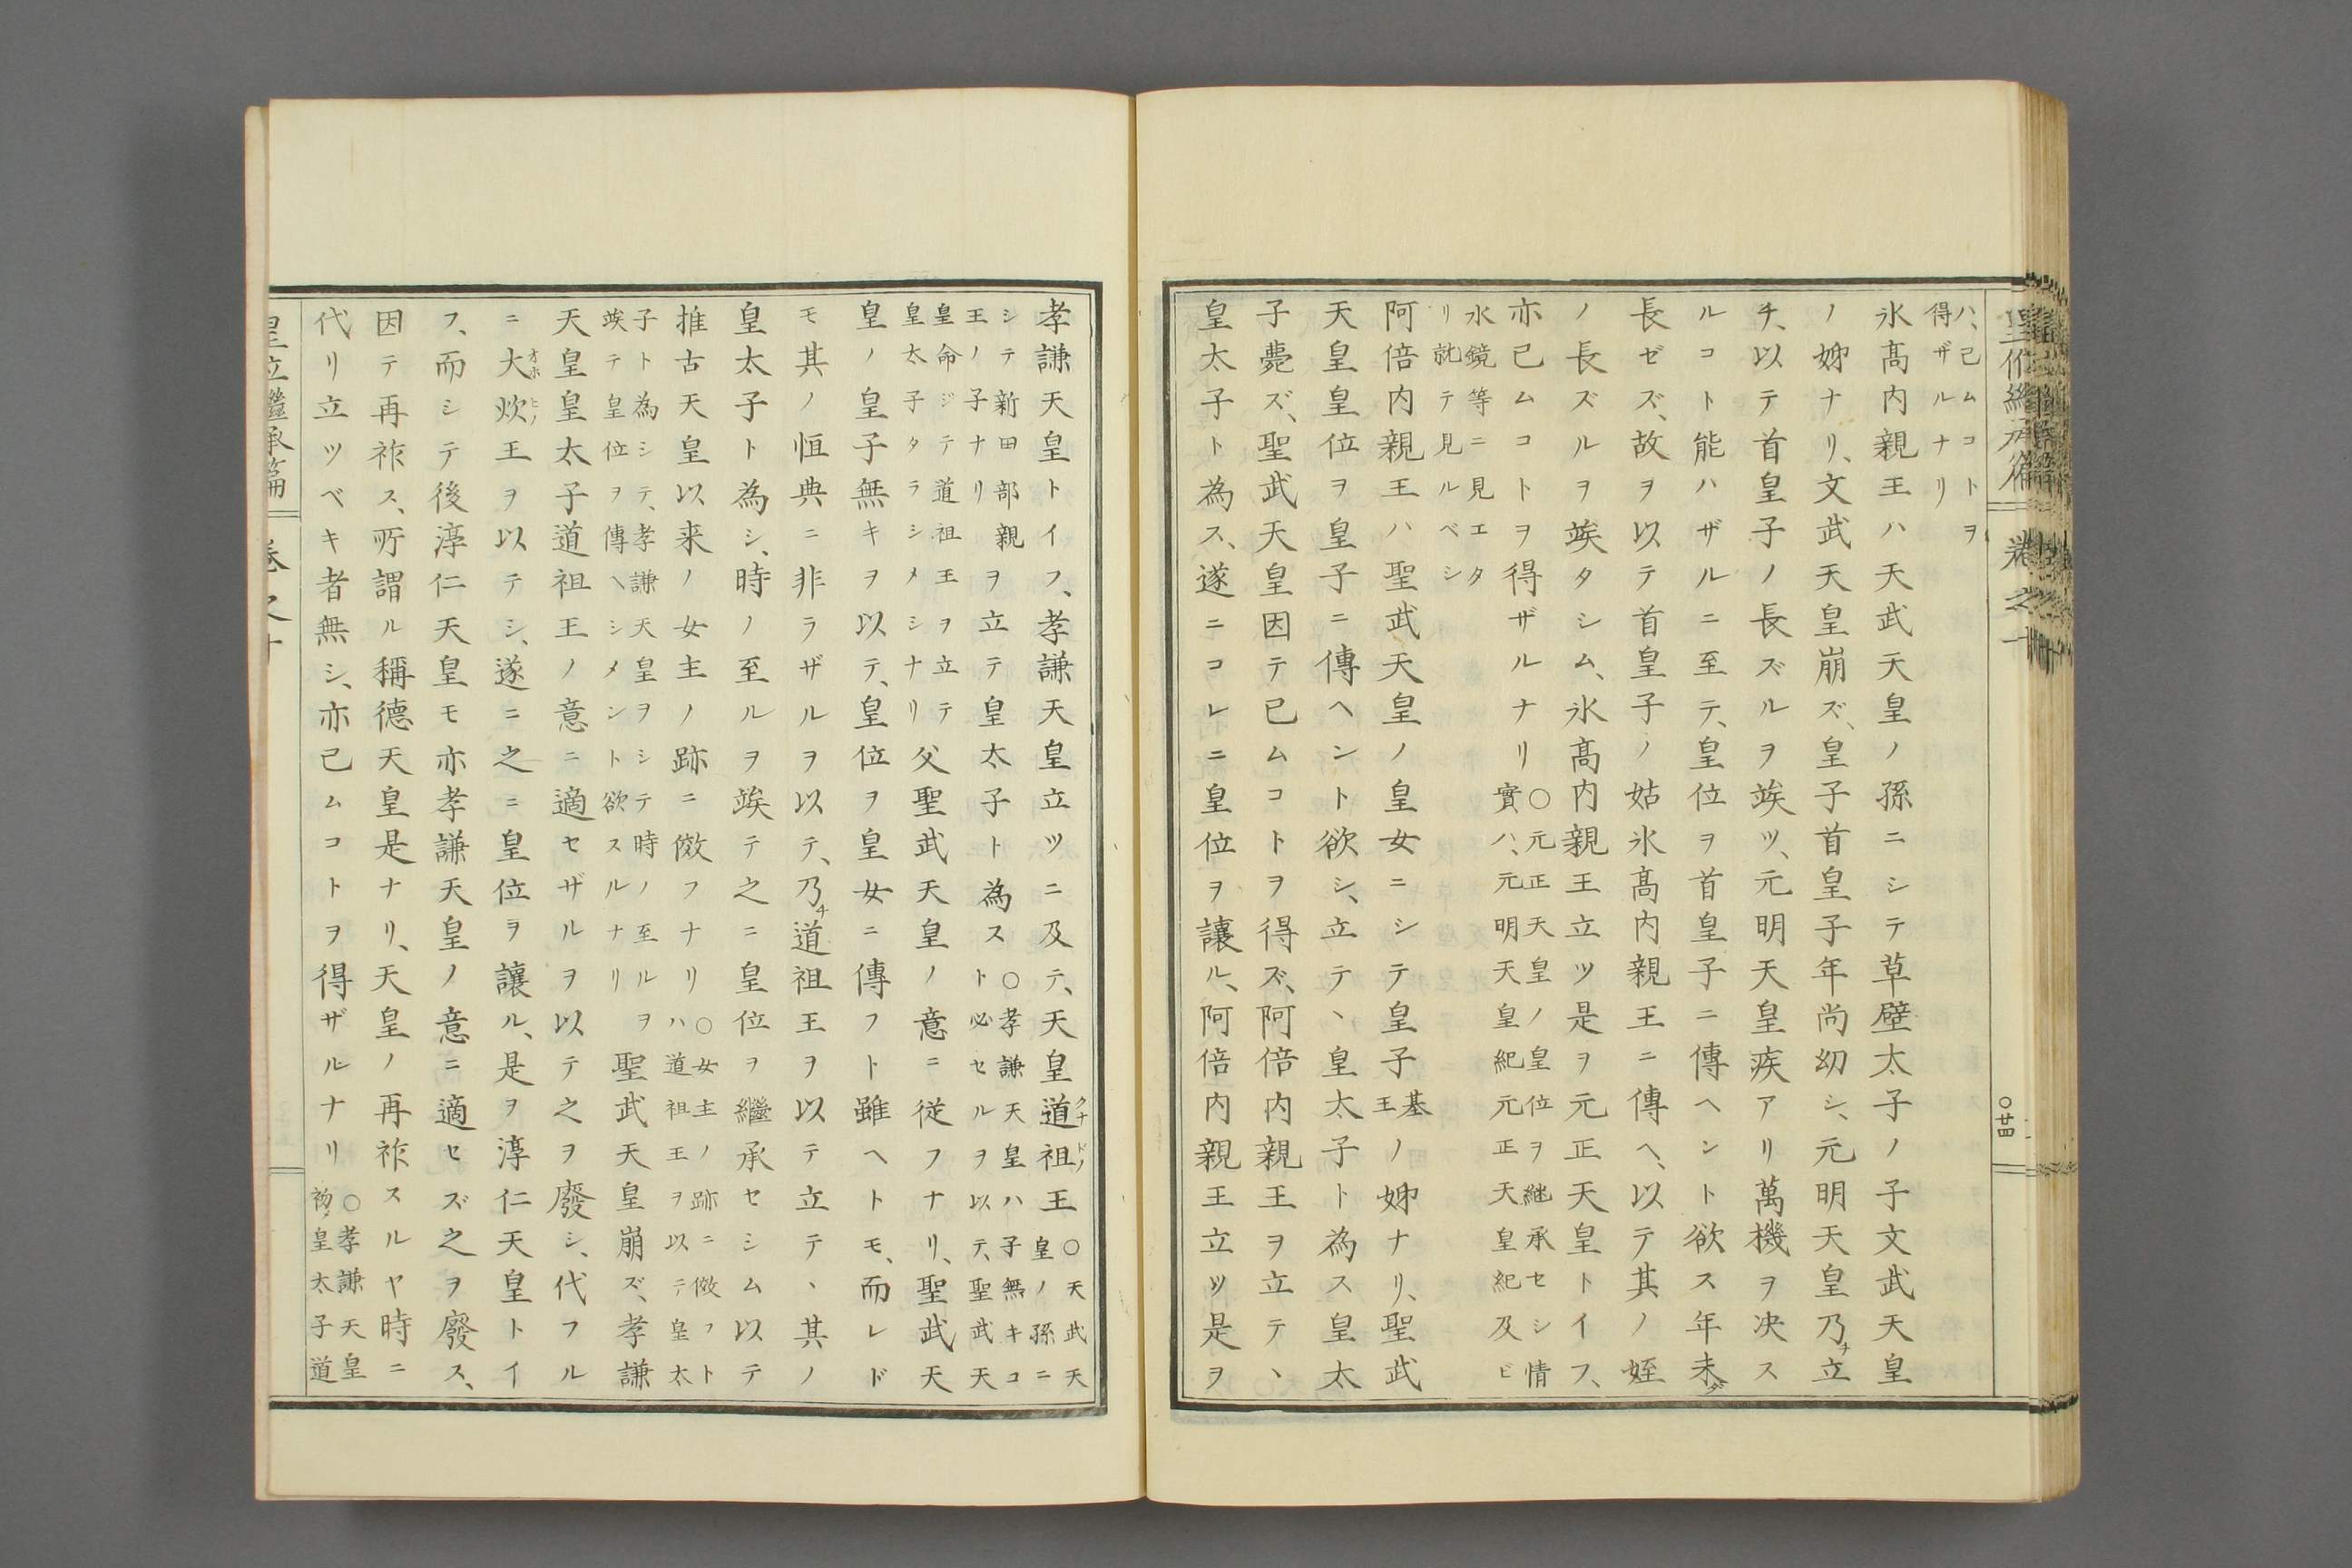 皇位繼承篇 卷之十
〇廿四
ハ、已ムコトヲ
得ザルナリ
氷高内親王ハ天武天皇ノ孫ニシテ草壁太子ノ子文武天皇
ノ姊ナリ、文武天皇崩ズ、皇子首皇子年尚幼シ、元明天皇乃チ立
チ、以テ首皇子ノ長ズルヲ竢ツ、元明天皇疾アリ萬機ヲ決ス
ルコト能ハザルニ至テ、皇位ヲ首皇子ニ傳ヘント欲ス年未ダ
長ゼズ、故ヲ以テ首皇子ノ姑氷高内親王ニ傳ヘ、以テ其ノ姪
ノ長ズルヲ竢タシム、氷高内親王立ツ是ヲ元正天皇トイフ、
亦已ムコトヲ得ザルナリ
〇元正天皇ノ皇位ヲ継承セシ情
實ハ、元明天皇紀元正天皇紀及ビ
水鏡等ニ見エタ
リ就テ見ルベシ
阿倍内親王ハ聖武天皇ノ皇女ニシテ皇子基王ノ姊ナリ、聖武
天皇皇位ヲ皇子ニ傳ヘント欲シ、立テヽ皇太子ト為ス皇太
子薨ズ、聖武天皇因テ已ムコトヲ得ズ、阿倍内親王ヲ立テヽ
皇太子ト為ス、遂ニコレニ皇位ヲ讓ル、阿倍内親王立ツ是ヲ
孝謙天皇トイフ、孝謙天皇立ツニ及テ、天皇道祖王
クナドノ
〇天武天
皇ノ孫ニ
シテ新田部親
王ノ子ナリ
ヲ立テ皇太子ト為ス
〇孝謙天皇ハ子無キコ
ト必セルヲ以テ、聖武天
皇命ジテ道祖王ヲ立テ
皇太子タラシメシナリ
父聖武天皇ノ意ニ従フナリ、聖武天
皇ノ皇子無キヲ以テ、皇位ヲ皇女ニ傳フト雖ヘトモ、而レド
モ其ノ恒典ニ非ラザルヲ以テ、乃チ道祖王ヲ以テ立テヽ其ノ
皇太子ト為シ、時ノ至ルヲ竢テ之ニ皇位ヲ繼承セシム以テ
推古天皇以来ノ女主ノ跡ニ傚フナリ
〇女主ノ跡ニ傚フト
ハ道祖王ヲ以テ皇太
子ト為シテ、孝謙天皇ヲシテ時ノ至ルヲ
竢テ皇位ヲ傳ヘシメント欲スルナリ
聖武天皇崩ズ、孝謙
天皇皇太子道祖王ノ意ニ適セザルヲ以テ之ヲ廢シ、代フル
ニ大炊王ヲ以テシ、遂ニ之ニ皇位ヲ讓ル、是ヲ淳仁天皇トイ
オホヒノ
フ、而シテ後淳仁天皇モ亦孝謙天皇ノ意ニ適セズ之ヲ廢ス、
因テ再祚ス、所謂ル稱德天皇是ナリ、天皇ノ再祚スルヤ時ニ
代リ立ツベキ者無シ、亦已ムコトヲ得ザルナリ
〇孝謙天皇
初メ皇太子道
皇位繼承篇 卷之十